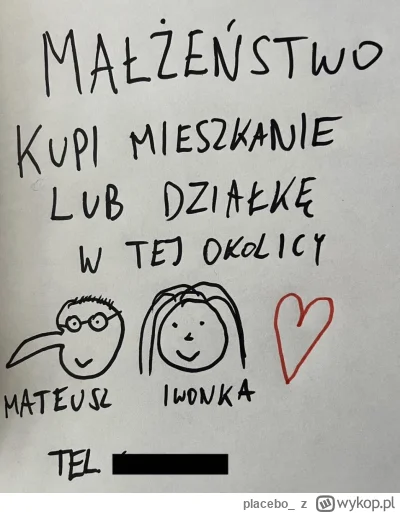 MAŁŻEŃSTWO
KUPI MIESZKANIE
LUB DZIAŁKĘ
W TEJ OKOLICY
MATEUSZ IWONKA
TEL
placebo_ z wykop.pl